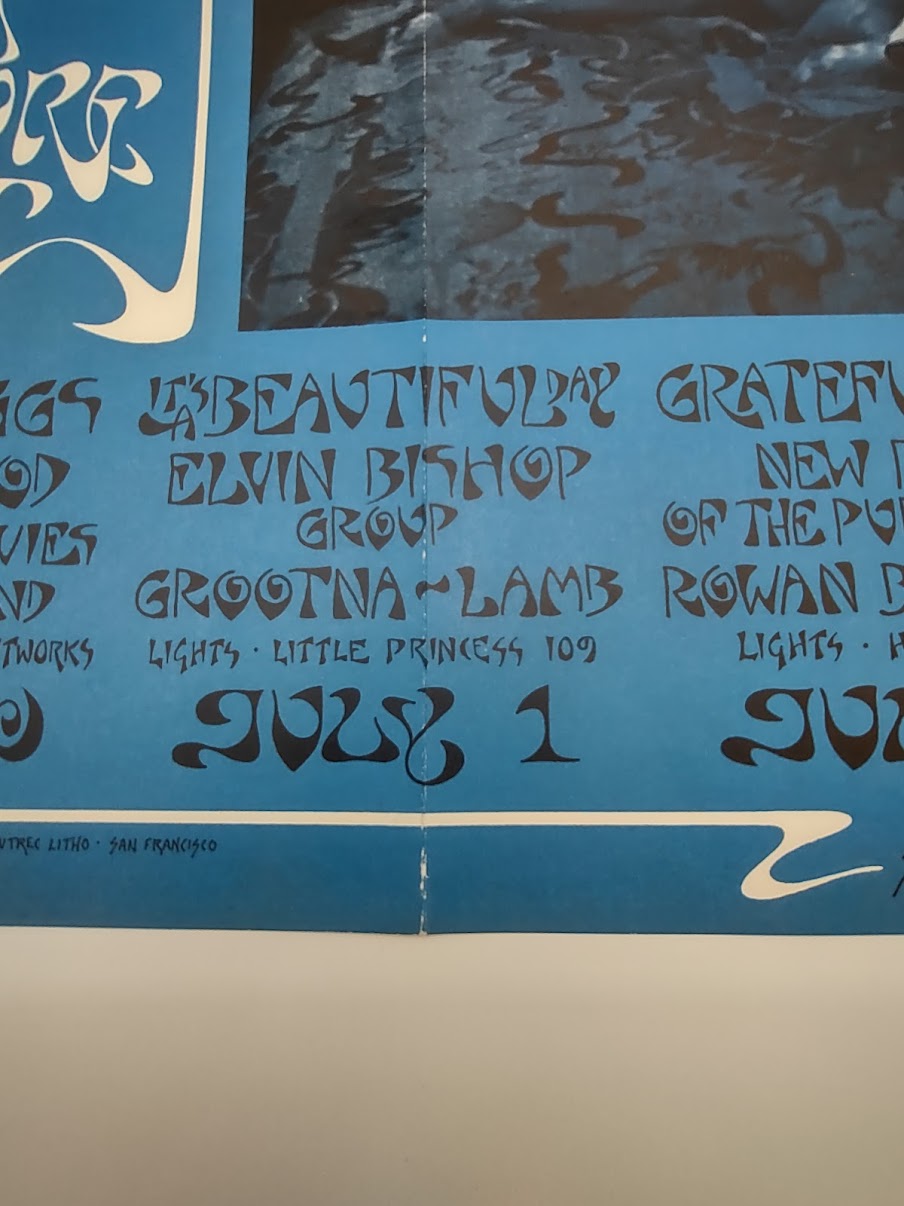 ORE
GGS
OD
VIES
ND
TWORKS
IT'S A BEAUTIFUL DAY
ELVIN BISHOP
GROUP
GROOTNA ~ LAMB
LIGHTS · LITTLE PRINCESS 109
JULY 1
GRATEFU
NEW
OF THE PU
ROWAN B
LIGHTS · H
JUL
UTREC LITHO · SAN FRANCISCO